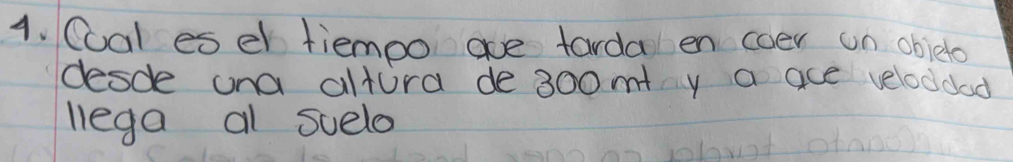 1. Cual es el tiempo que tarda en caer un objeto
desde una altura de 300 mt y a que velocidad
llega al suelo